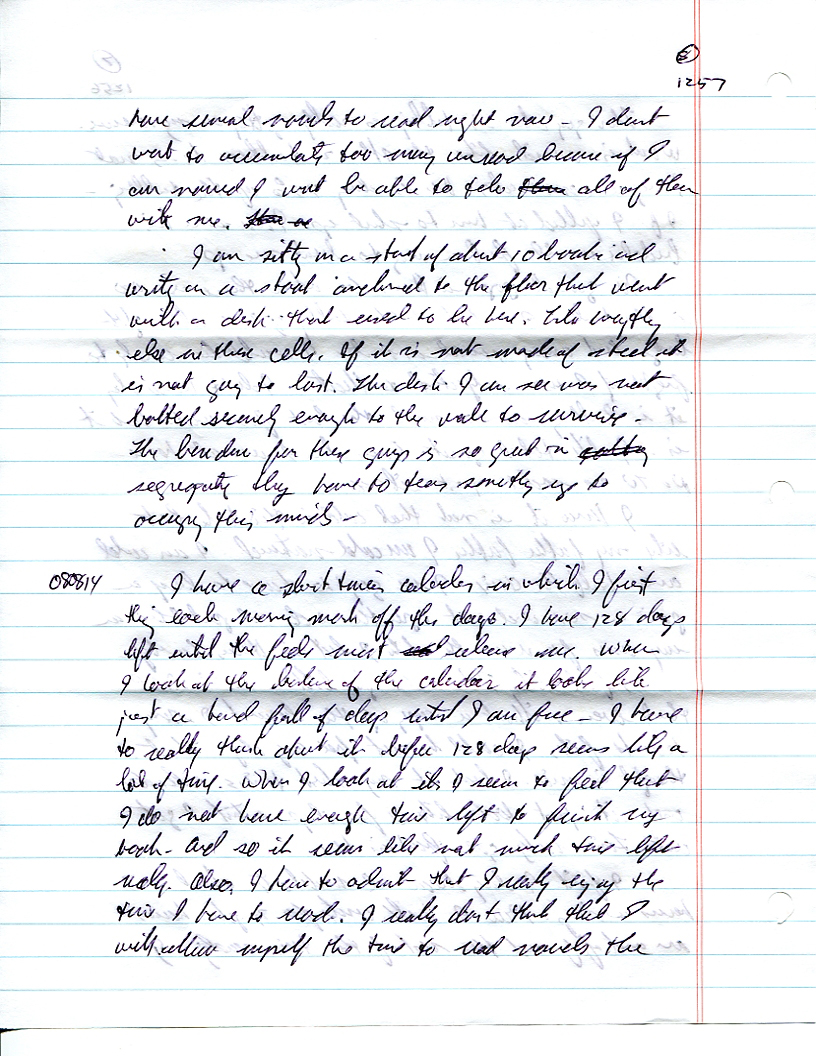 2
1257
have several novels to read right now - I dont
want to accumulate too many unread because if I
am moved I wont be able to take them all of them
with me.
I am sitting on a stack of about 10 books and
writing on a stool anchored to the floor that went
with a desk that used to be here. Like everything
else in these cells. If it is not made of steel it
is not going to last. The desk I can see was not
bolted securely enough to the wall to survive.
The boredom for these guys is so great in
segregation they have to tear something up to
occupy their minds -
080814
I have a short timers calendar in which I first
thing each morning mark off the days. I have 128 days
left until the feds must release me. When
I look at the balance of the calendar it looks like
just a hand full of days until I am free - I have
to really think about it before 128 days seems like a
lot of time. When I look at it I seem to feel that
I do not have enough time left to finish my
book - and so it seems like not much time left
really. Also, I have to admit that I really enjoy the
time I have to read. I really dont think that I
will allow myself the time to read novels the